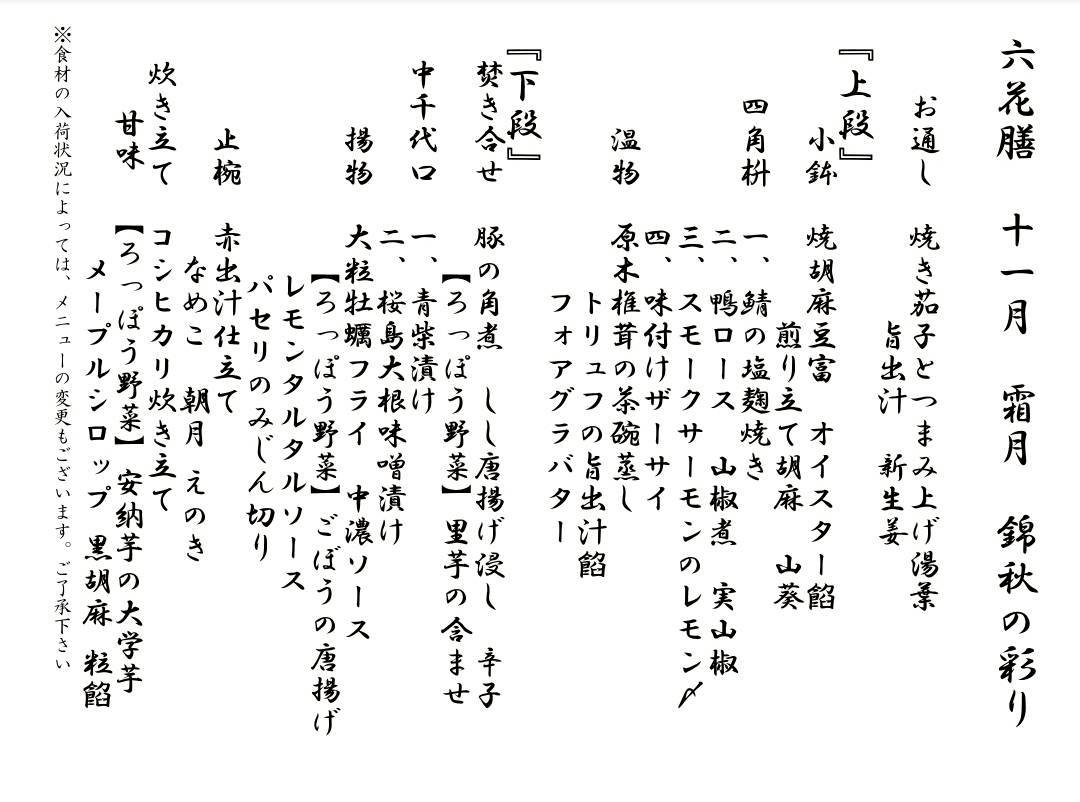 六花膳 十一月 霜月 錦秋の彩り
お通し 焼き茄子とつまみ上げ湯葉
旨出汁 新生姜
『上段』
小鉢 焼胡麻豆富 オイスター餡
煎り立て胡麻 山葵
四角枡 一、鯖の塩麹焼き
二、鴨ロース 山椒煮 実山椒
三、スモークサーモンのレモン〆
四、味付けザーサイ
温物 原木椎茸の茶碗蒸し
トリュフの旨出汁餡
フォアグラバター
『下段』
焚き合せ 豚の角煮 しし唐揚げ浸し 辛子
【ろっぽう野菜】里芋の含ませ
中千代口 一、青柴漬け
二、桜島大根味噌漬け
揚物 大粒牡蠣フライ 中濃ソース
【ろっぽう野菜】ごぼうの唐揚げ
レモンタルタルソース
パセリのみじん切り
止椀 赤出汁仕立て
なめこ 朝月 えのき
炊き立て コシヒカリ炊き立て
甘味 【ろっぽう野菜】安納芋の大学芋
メープルシロップ 黒胡麻 粒餡
※食材の入荷状況によっては、メニューの変更もございます。ご了承下さい